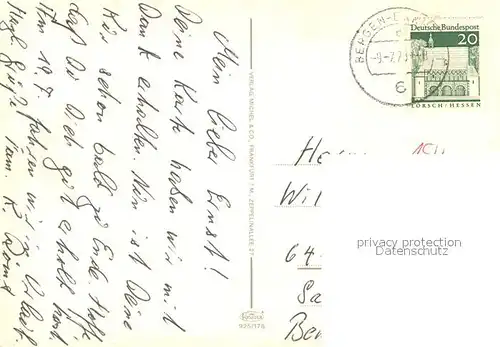 Mein lieber Ernst!
Deine Karte haben wir mit
Dank erhalten. Nun ist Deine
Kur schon bald zu Ende. Hoffe
daß Du Dich gut erholt hast.
Am 19.7. fahren wir in Urlaub.
Herzl. Grüße Fam. K.
VERLAG MICHEL & CO., FRANKFURT/M., ZEPPELINALLEE 27
925/176
BERGEN-EN
-9-7.7
6
Deutsche Bundespost
20
LORSCH/HESSEN
He
Wil
64
Sa
Ber
privacy protection
VEIKKOS.COM